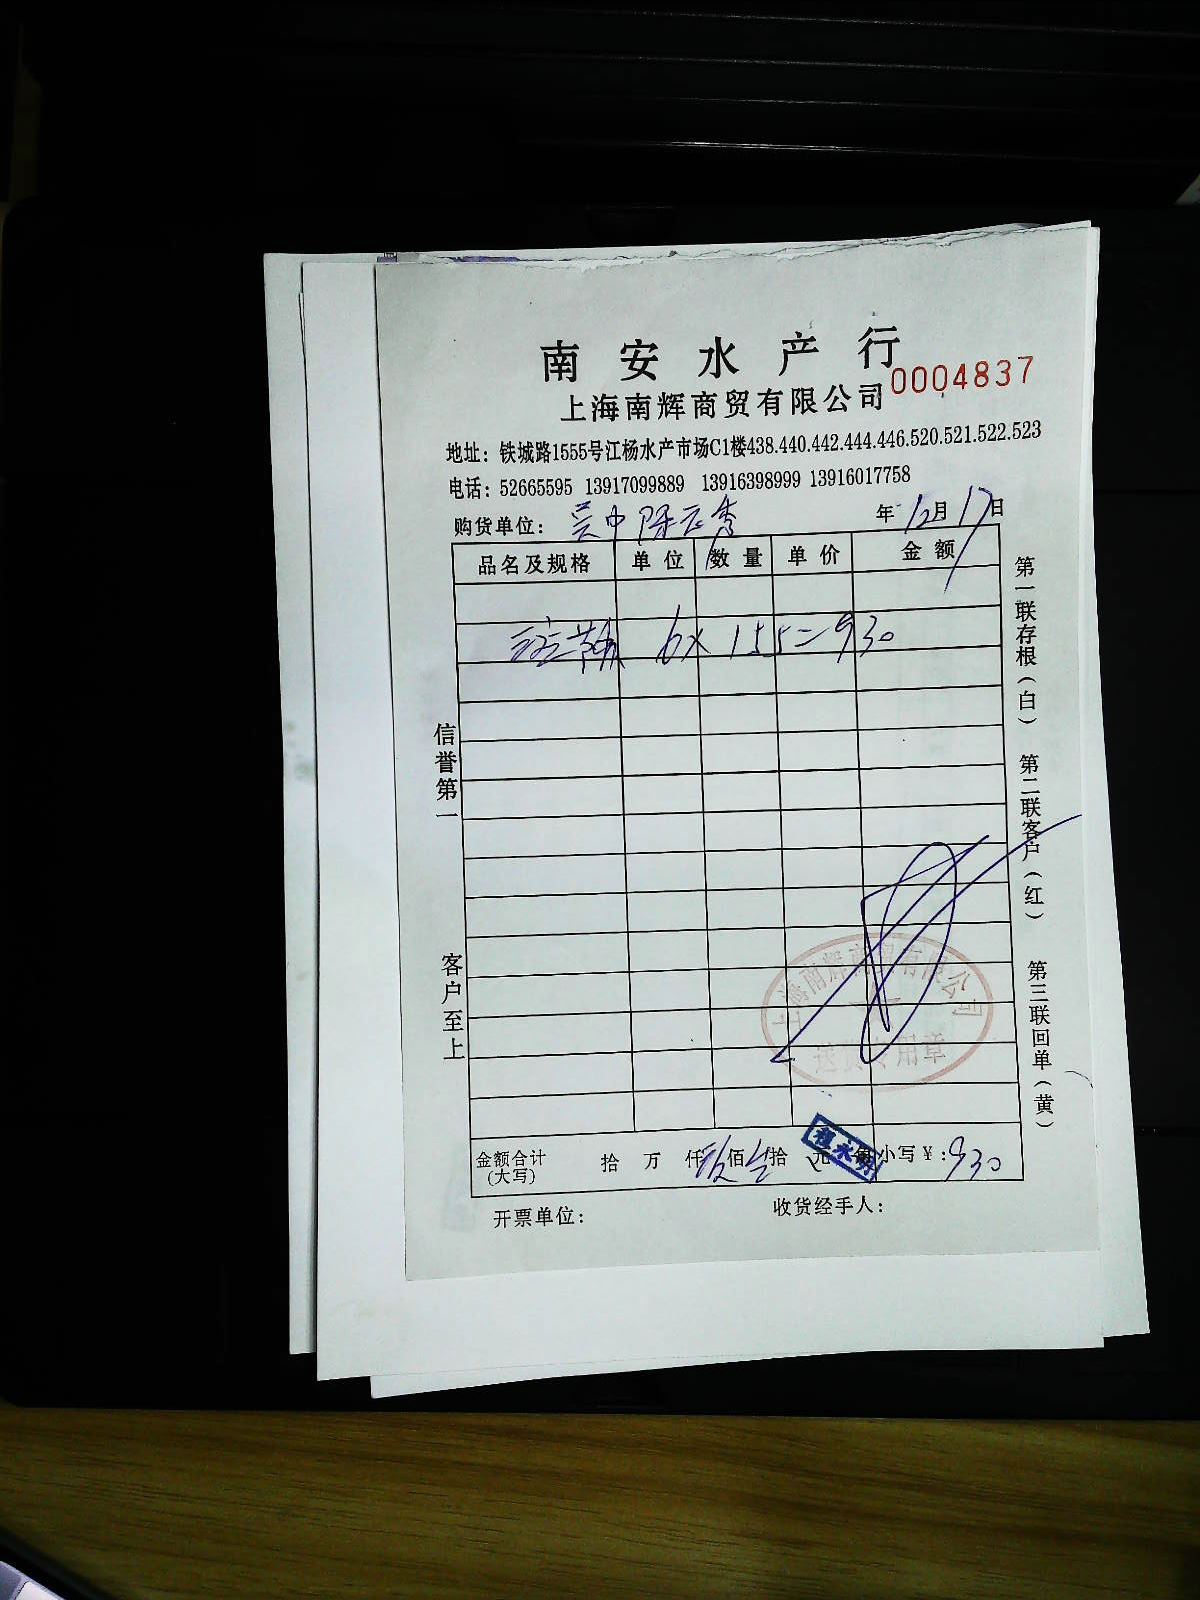 南安水产行
0004837
上海南辉商贸有限公司
地址：铁城路1555号江杨水产市场C1楼438.440.442.444.446.520.521.522.523
电话：52665595 13917099889 13916398999 13916017758
购货单位：吴中陈云秀 年12月17日
品名及规格 单位 数量 单价 金额
6x 155=930
金额合计（大写） 拾 万 仟 佰 拾 元 小写￥：930
开票单位： 收货经手人：
信誉第一
客户至上
第一联存根（白）
第二联客户（红）
第三联回单（黄）
上海南辉商贸有限公司
送货专用章
程永明